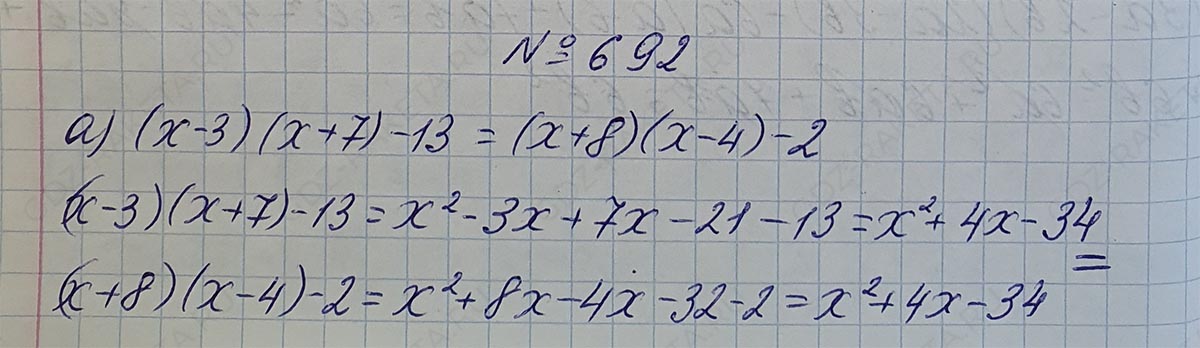 № 692
а) (x-3)(x+7)-13 = (x+8)(x-4)-2
(x-3)(x+7)-13 = x²-3x+7x-21-13 = x²+4x-34
=
(x+8)(x-4)-2 = x²+8x-4x-32-2 = x²+4x-34